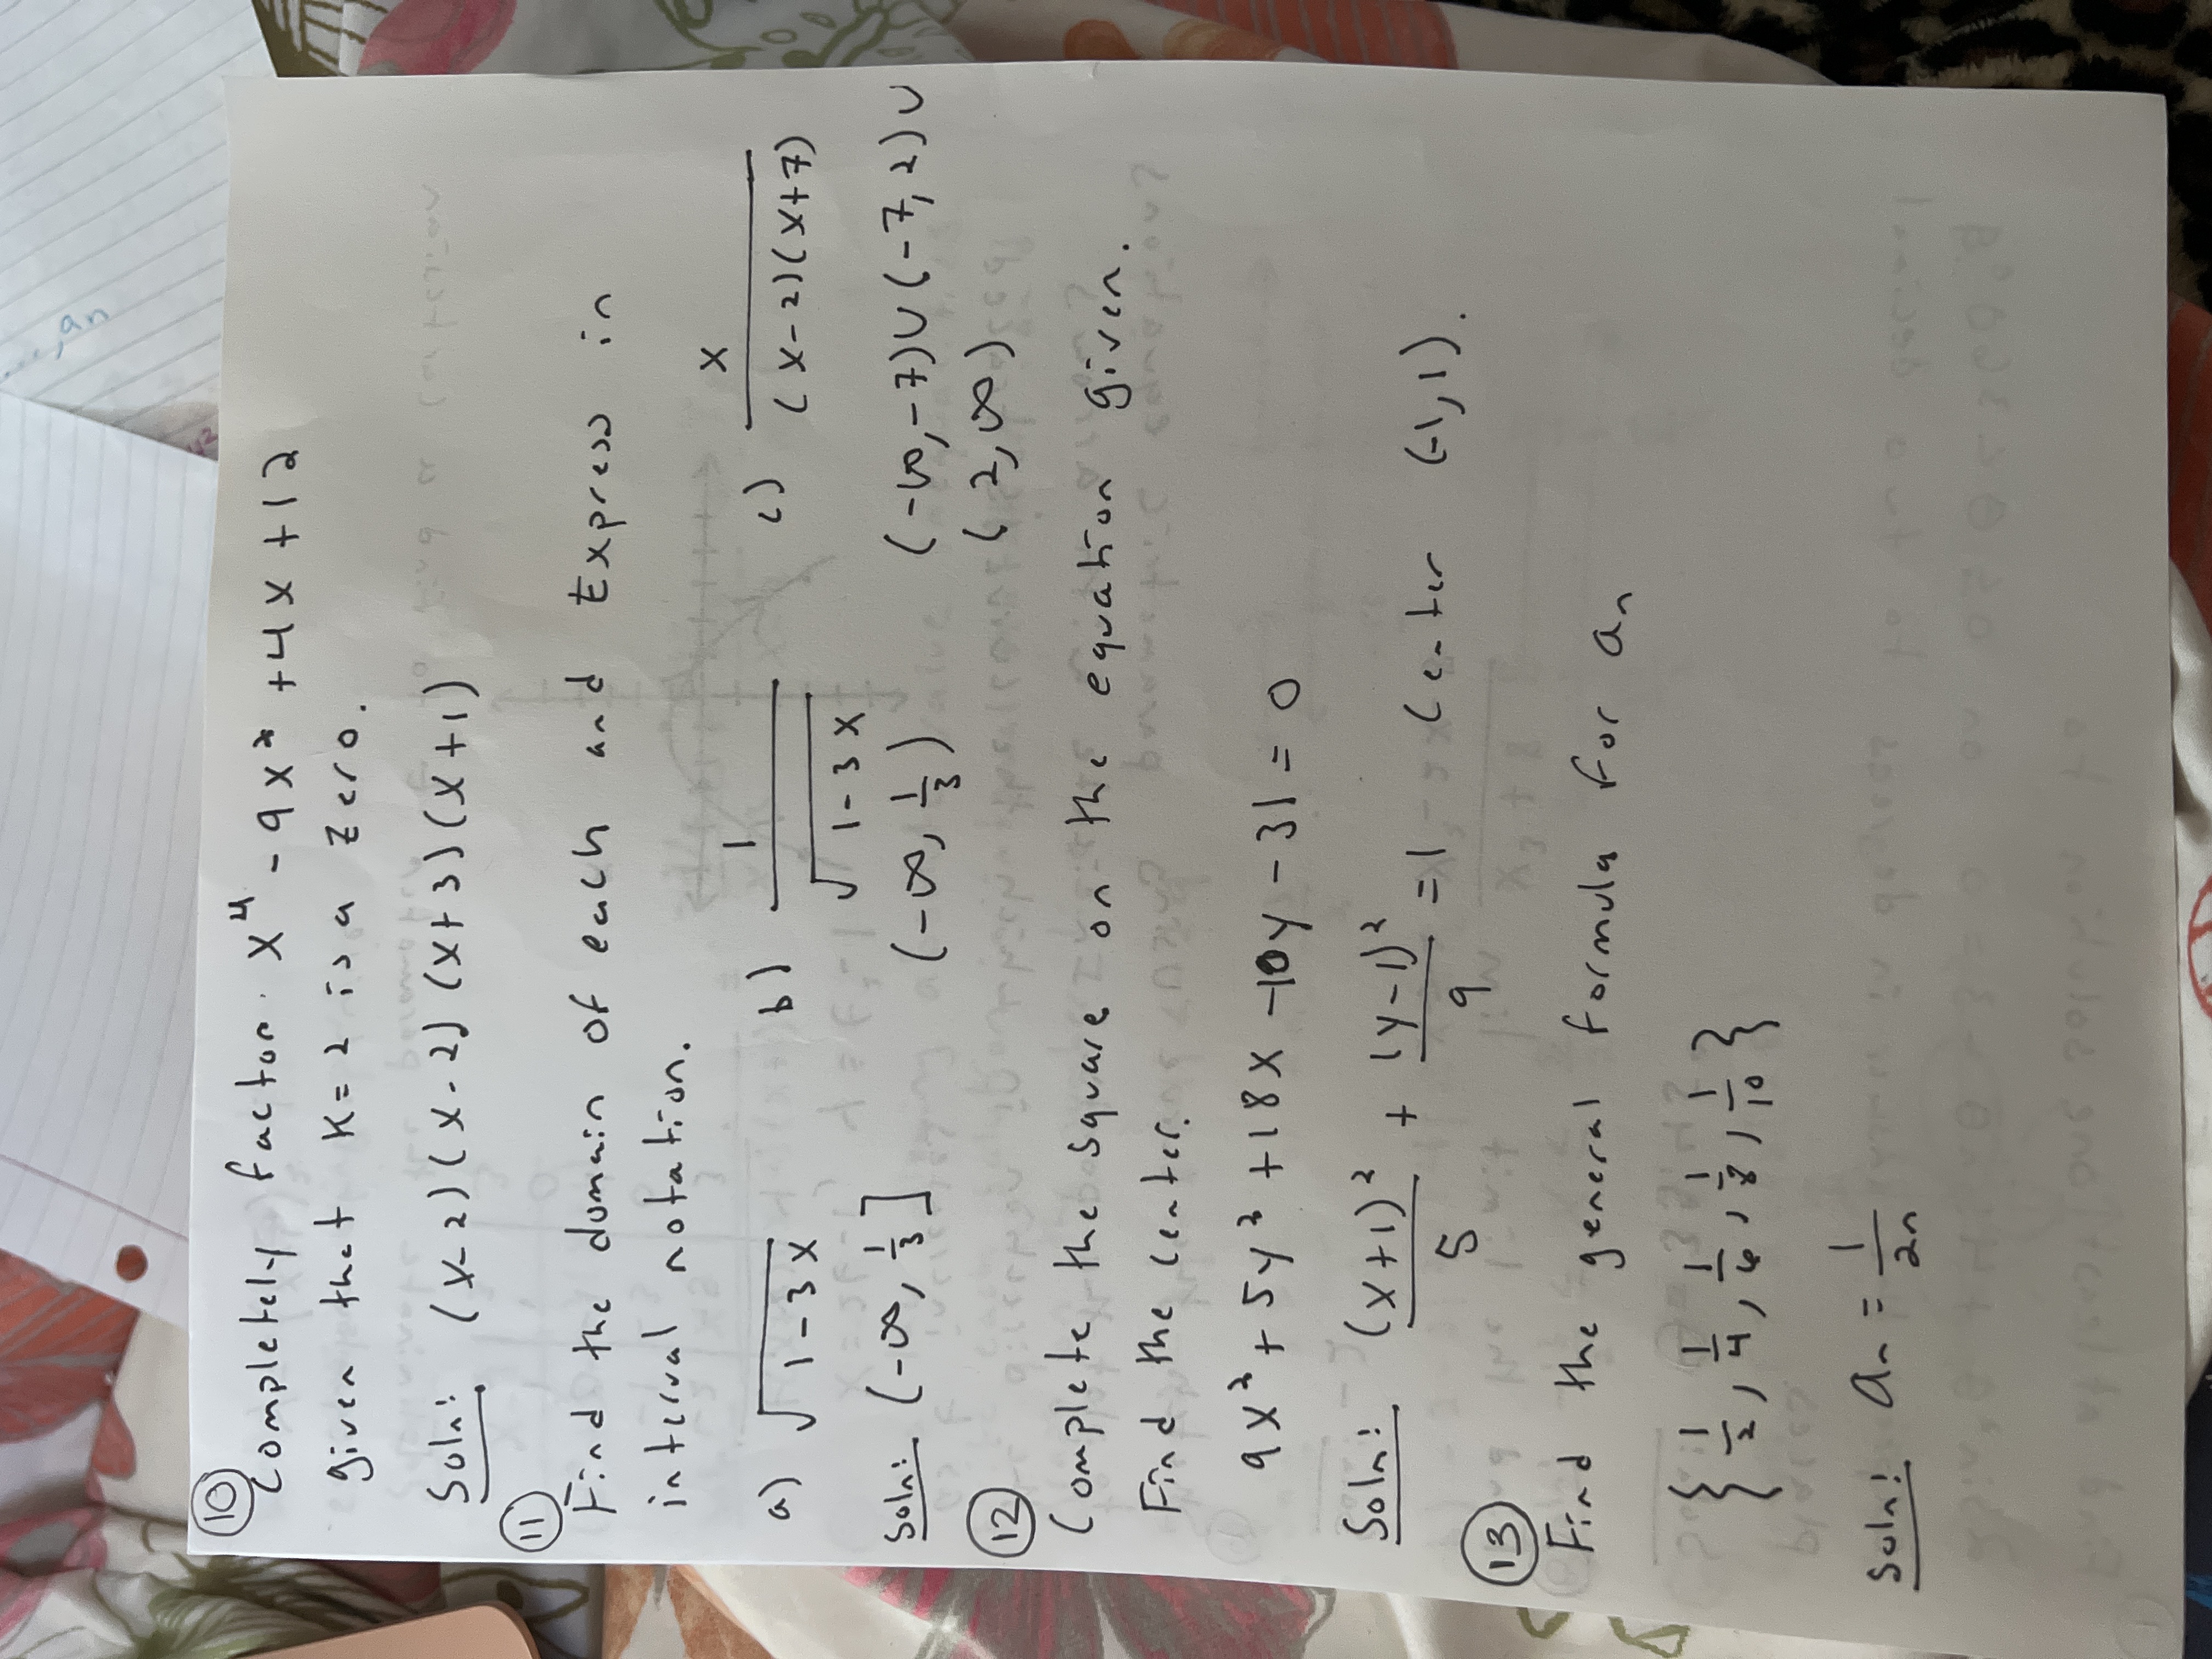 ⑩ Completely factor. x⁴ - 9x² + 4x + 12
given that k = 2 is a zero.
Soln: (x-2)(x-2)(x+3)(x+1)
⑪ Find the domain of each and Express in
interval notation.
a) √(1-3x) b) 1/√(1-3x) c) x/((x-2)(x+7))
Soln: (-∞, 1/3] (-∞, 1/3) (-∞, -7)∪(-7, 2)∪
(2, ∞)
⑫ Complete the square on the equation given.
Find the center.
9x² + 5y² + 18x - 10y - 31 = 0
Soln: (x+1)²/5 + (y-1)²/9 = 1 Center (-1, 1).
⑬ Find the general formula for aₙ
{1/2, 1/4, 1/6, 1/8, 1/10}
Soln: aₙ = 1/2n